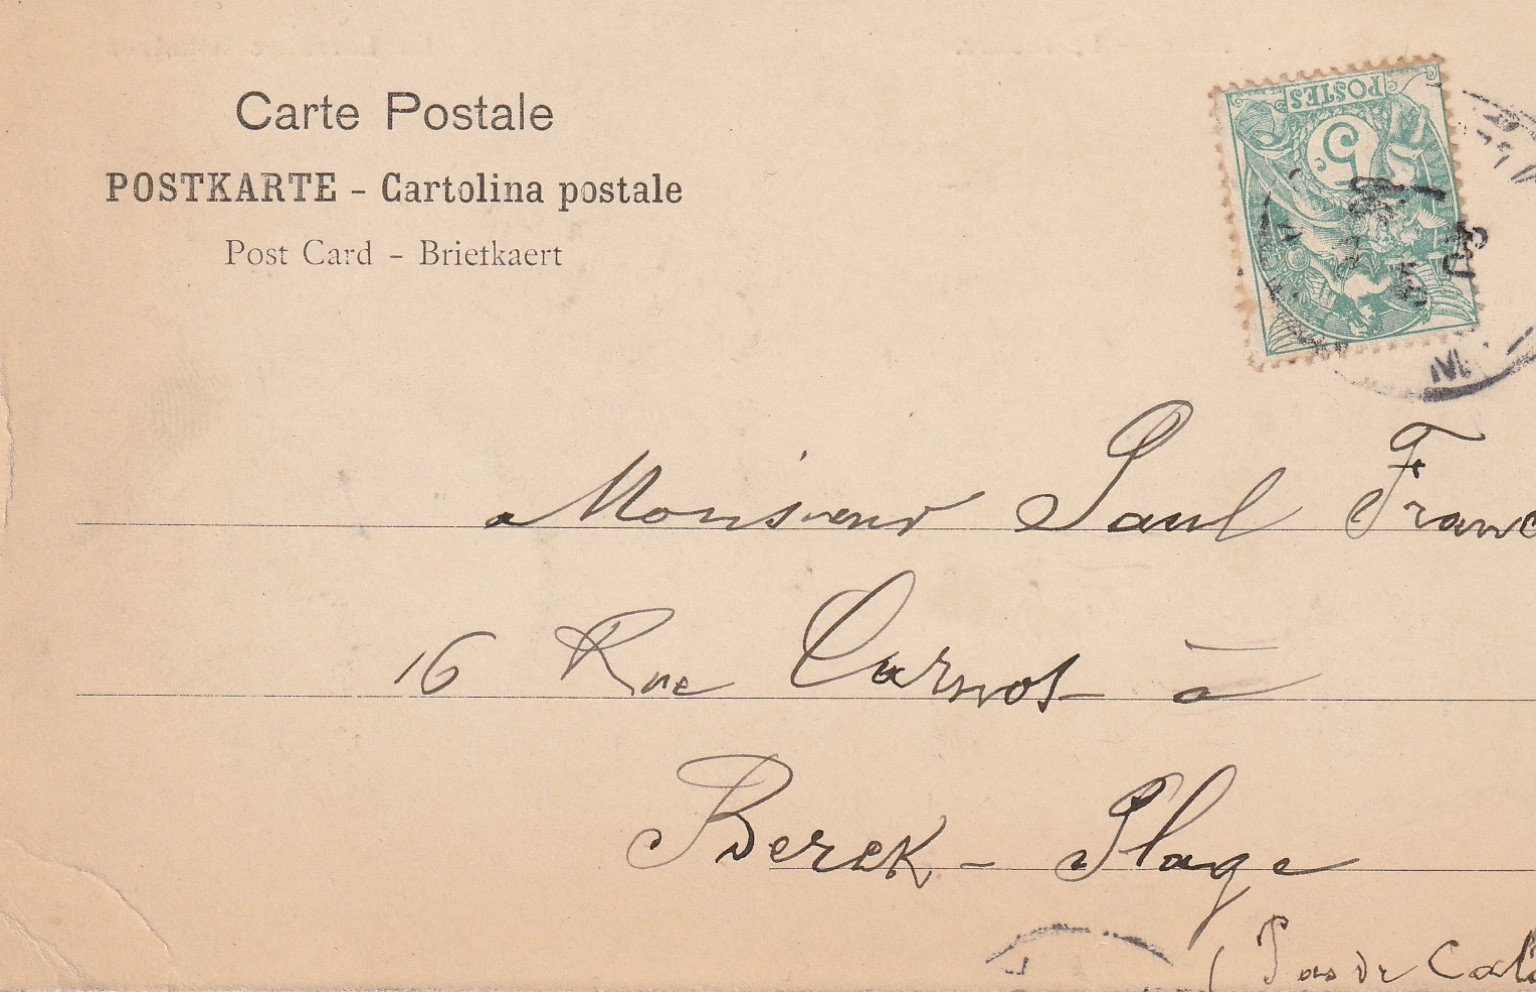 Carte Postale
POSTKARTE - Cartolina postale
Post Card - Briefkaert
POSTES
5c
05
a Monsieur Paul Franc
16 Rue Carnot à
Berck - Plage
(Pas de Cala